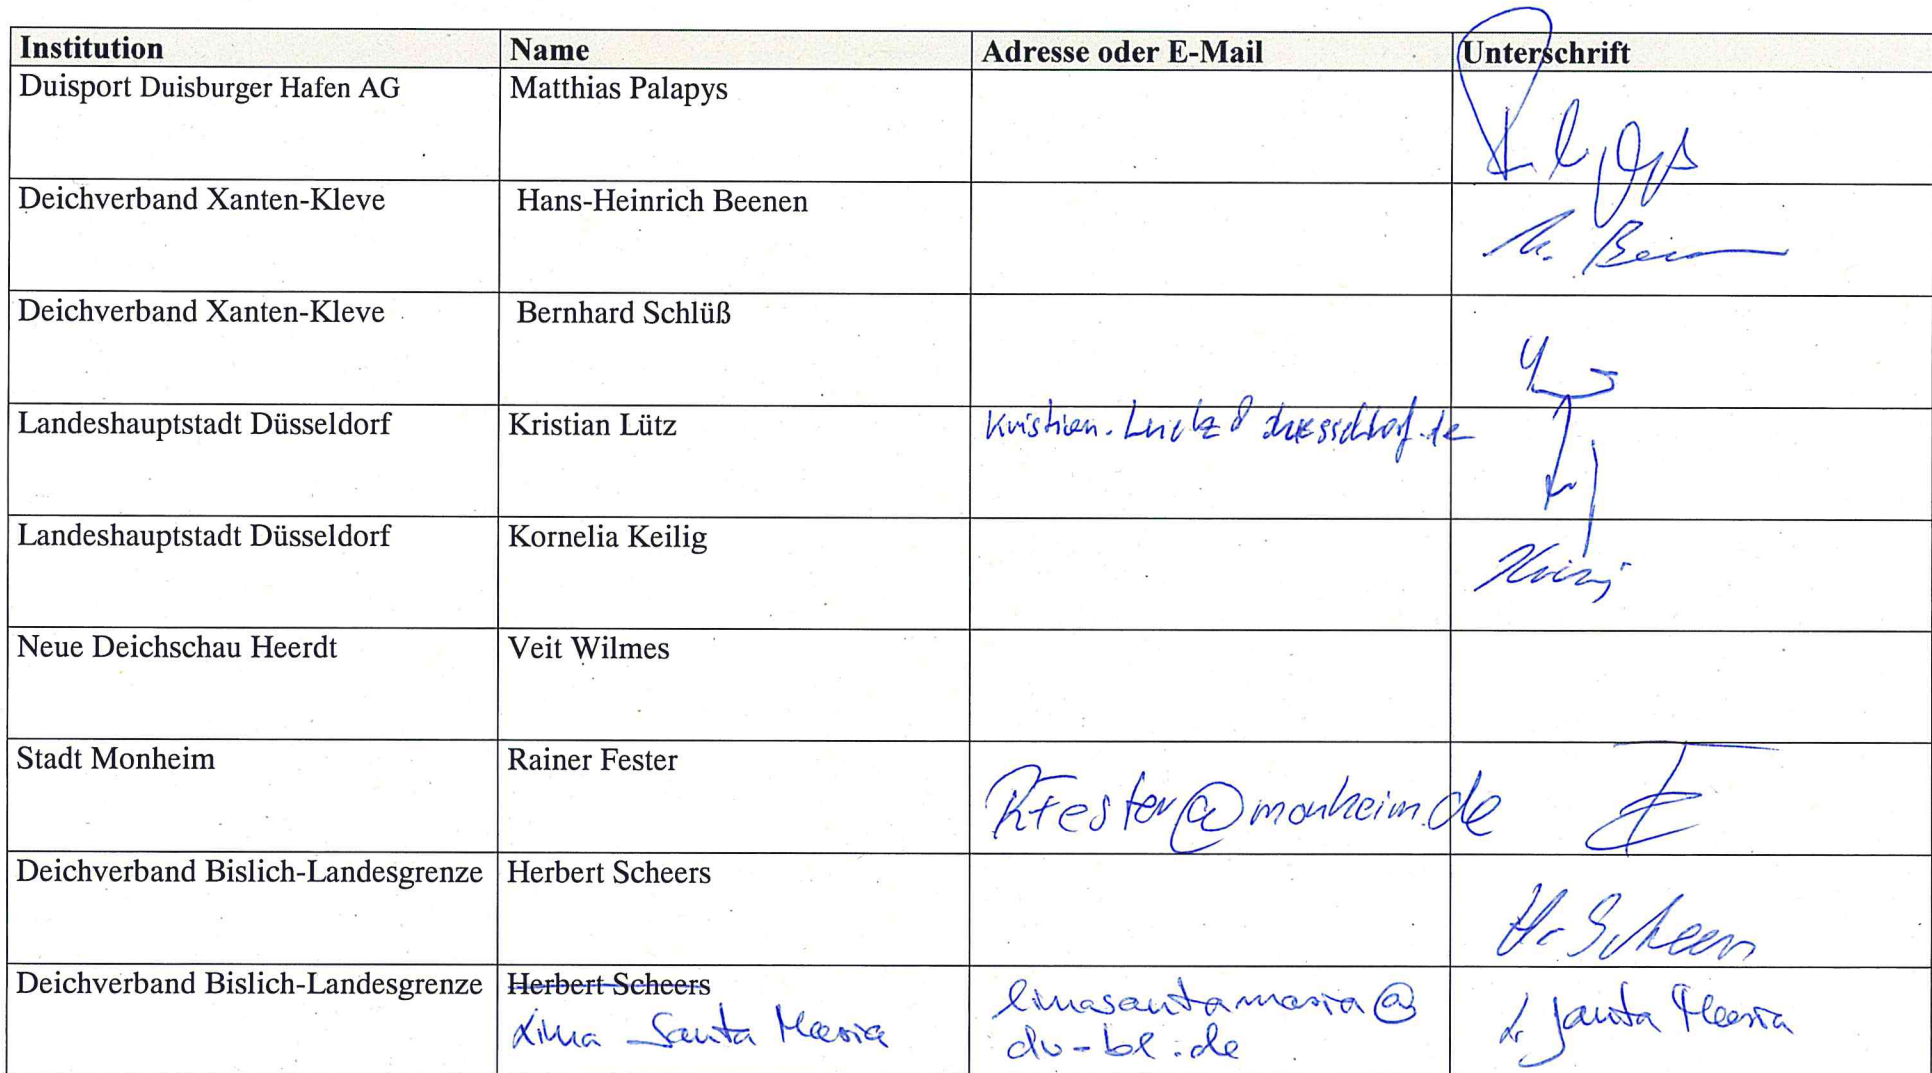 Institution Name Adresse oder E-Mail Unterschrift
Duisport Duisburger Hafen AG Matthias Palapys
Deichverband Xanten-Kleve Hans-Heinrich Beenen
Deichverband Xanten-Kleve Bernhard Schlüß
Landeshauptstadt Düsseldorf Kristian Lütz Kristian.Luetz@duesseldorf.de
Landeshauptstadt Düsseldorf Kornelia Keilig
Neue Deichschau Heerdt Veit Wilmes
Stadt Monheim Rainer Fester Rfester@monheim.de
Deichverband Bislich-Landesgrenze Herbert Scheers H. Scheers
Deichverband Bislich-Landesgrenze Herbert Scheers limasantamaria@
Lima Santa Maria dv-bl.de L. Santa Maria